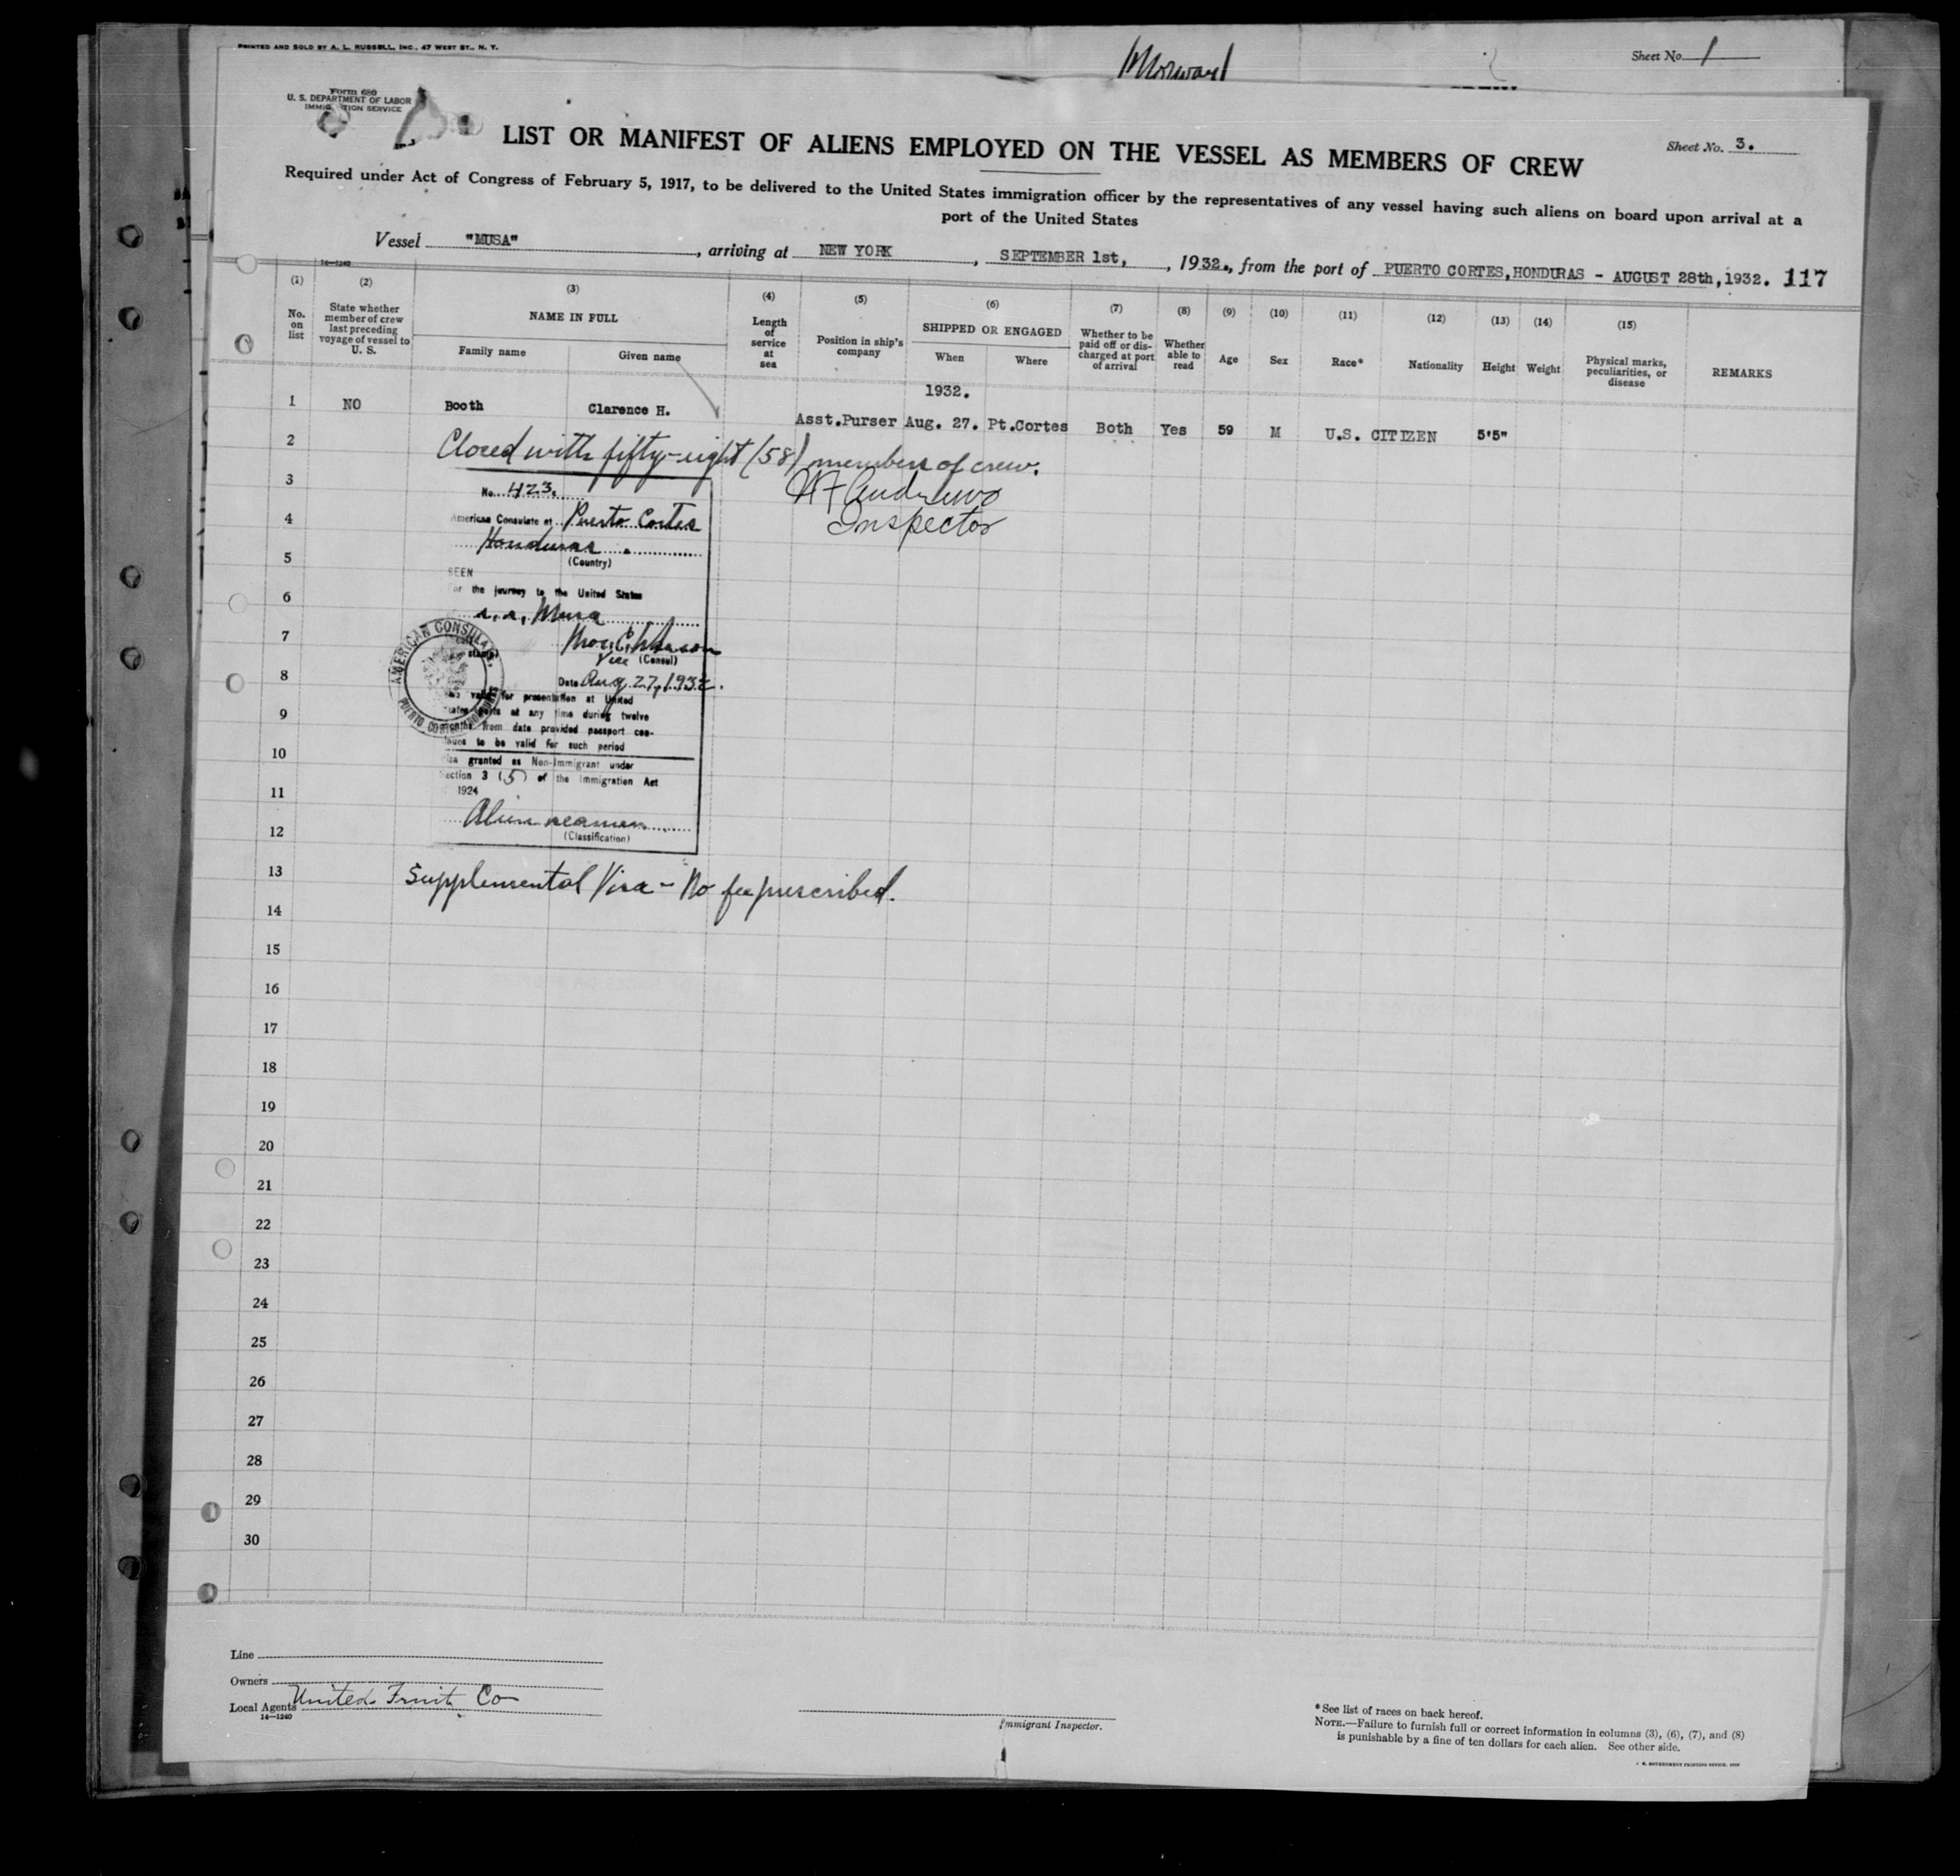 PRINTED AND SOLD BY A. L. RUSSELL, INC., 47 WEST ST., N. Y.
Sheet No. 1
Form 680
U. S. DEPARTMENT OF LABOR
IMMIGRATION SERVICE
LIST OR MANIFEST OF ALIENS EMPLOYED ON THE VESSEL AS MEMBERS OF CREW
Sheet No. 3.
Required under Act of Congress of February 5, 1917, to be delivered to the United States immigration officer by the representatives of any vessel having such aliens on board upon arrival at a
port of the United States
Vessel "MUSA", arriving at NEW YORK, SEPTEMBER 1st, , 1932., from the port of PUERTO CORTES, HONDURAS - AUGUST 28th, 1932. 117
14-1240
(1) (2) (3) (4) (5) (6) (7) (8) (9) (10) (11) (12) (13) (14) (15)
No. on list
State whether member of crew last preceding voyage of vessel to U. S.
NAME IN FULL
Family name
Given name
Length of service at sea
Position in ship's company
SHIPPED OR ENGAGED
When
Where
Whether to be paid off or discharged at port of arrival
Whether able to read
Age
Sex
Race*
Nationality
Height
Weight
Physical marks, peculiarities, or disease
REMARKS
1932.
1 NO Booth Clarence H. Asst.Purser Aug. 27. Pt.Cortes Both Yes 59 M U.S. CITIZEN 5'5"
2
Closed with fifty-eight (58) members of crew.
Inspector
3
No. 423.
4
American Consulate at Puerto Cortes
Honduras
5
(Country)
SEEN
6
For the journey to the United States
s.s. Musa
7
Vice (Consul)
8
Date Aug. 27, 1932.
AMERICAN CONSULAR
PUERTO CORTES
valid for presentation at United
States ports at any time during twelve
9
months from date provided passport con-
tinues to be valid for such period
10
Visa granted as Non-Immigrant under
Section 3 (5) of the Immigration Act
11
1924
Alien seaman
12
(Classification)
13
Supplemental Visa - No fee prescribed.
14
15
16
17
18
19
20
21
22
23
24
25
26
27
28
29
30
Line
Owners
Local Agents United Fruit Co
14-1240
Immigrant Inspector.
*See list of races on back hereof.
NOTE.—Failure to furnish full or correct information in columns (3), (6), (7), and (8)
is punishable by a fine of ten dollars for each alien. See other side.